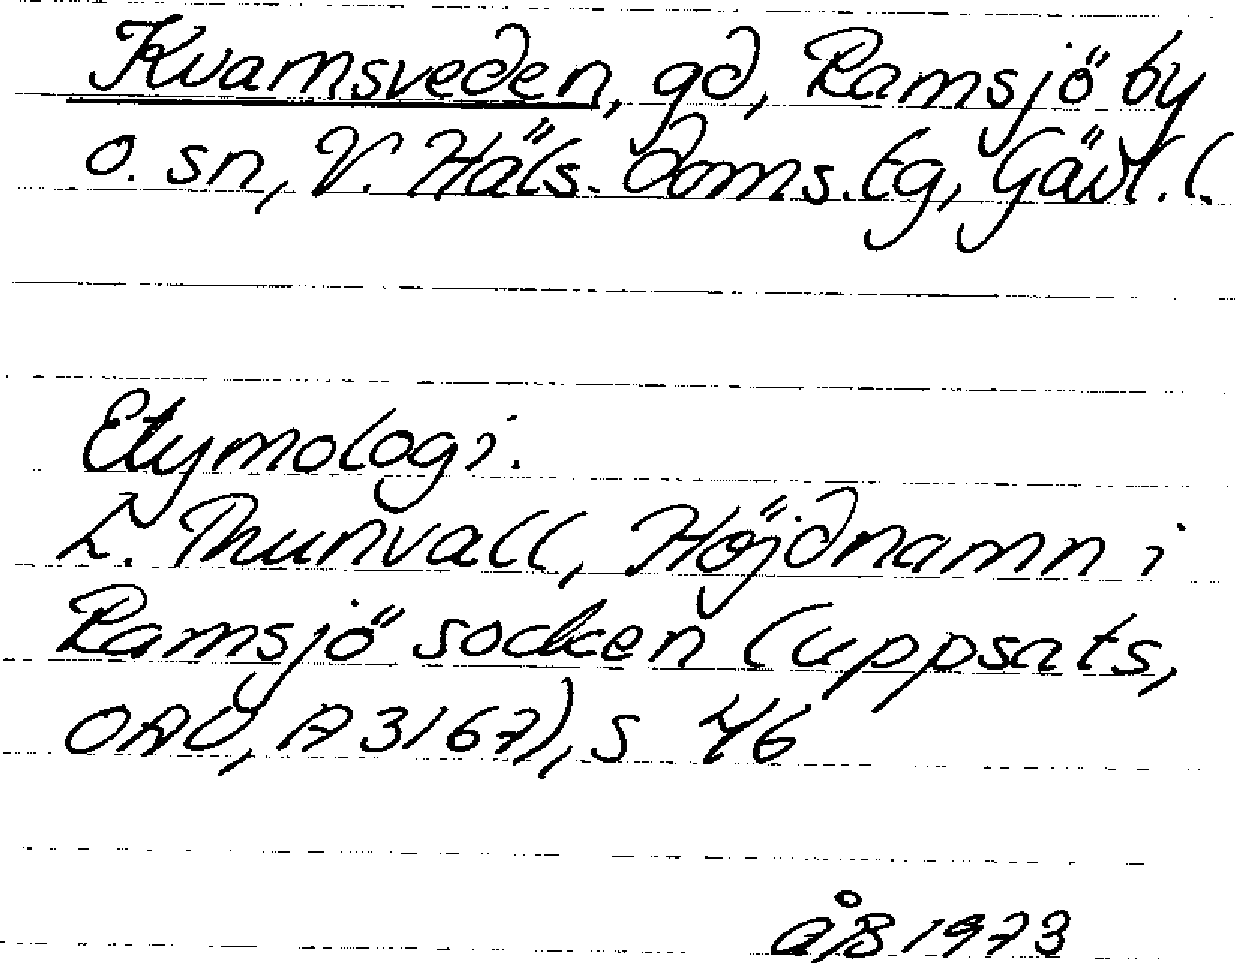 Kvarnsveden, gd, Ramsjö by
o. sn, V. Häls. doms.tg, Gävl. l.
Etymologi.
L. Thunvall, Höjdnamn i
Ramsjö socken (uppsats,
OAU, A 3167), s 46
åB 1973